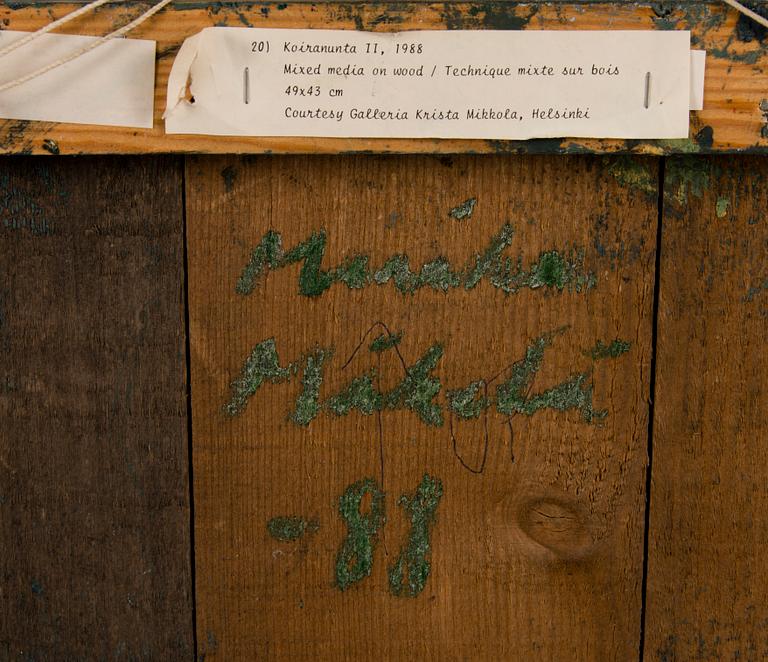 20) Koiranunta II, 1988
Mixed media on wood / Technique mixte sur bois
49x43 cm
Courtesy Galleria Krista Mikkola, Helsinki
Mäkelä
-88